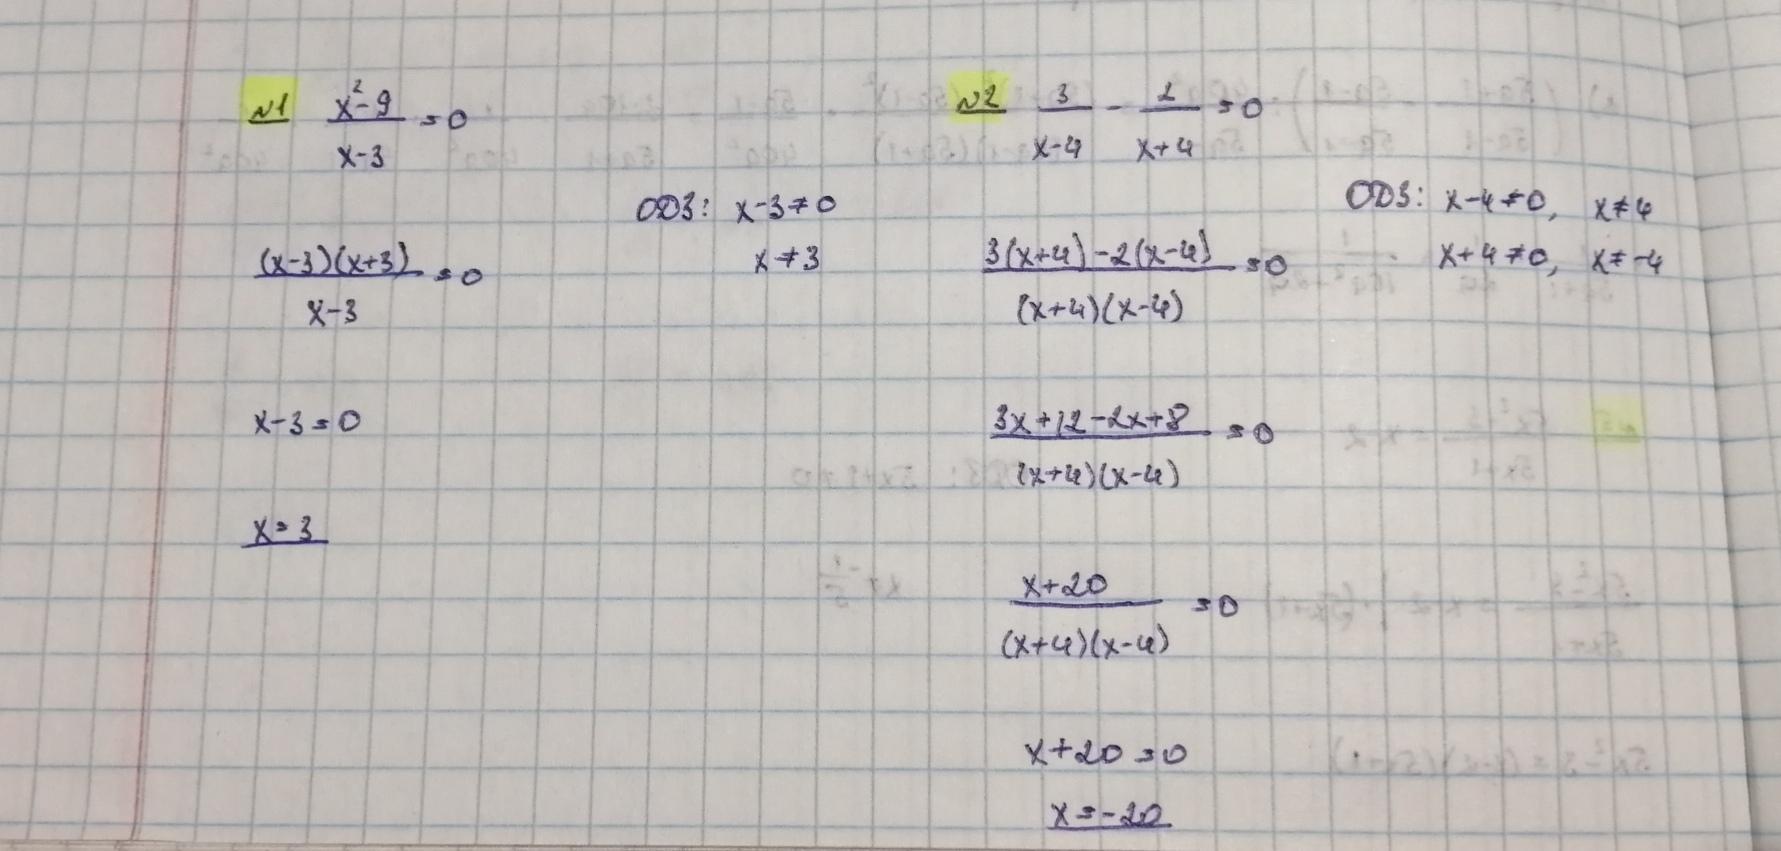 №1 (x²-9)/(x-3) = 0
ОДЗ: x-3≠0
x≠3
((x-3)(x+3))/(x-3) = 0
x-3=0
x=3
№2 3/(x-4) - 2/(x+4) = 0
ОДЗ: x-4≠0, x≠4
x+4≠0, x≠-4
(3(x+4)-2(x-4))/((x+4)(x-4)) = 0
(3x+12-2x+8)/((x+4)(x-4)) = 0
(x+20)/((x+4)(x-4)) = 0
x+20=0
x=-20